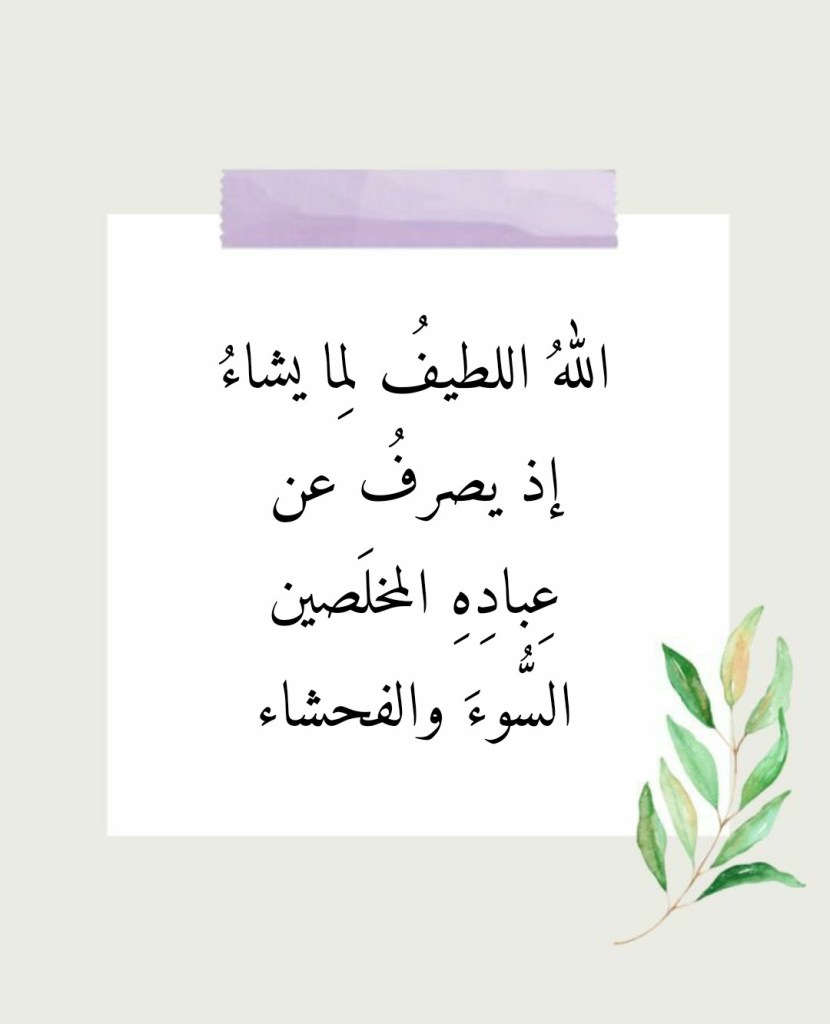 اللهُ اللطيفُ لِما يشاءُ
إذ يصرفُ عن
عِبادِهِ المخلَصين
السُّوءَ والفحشاء